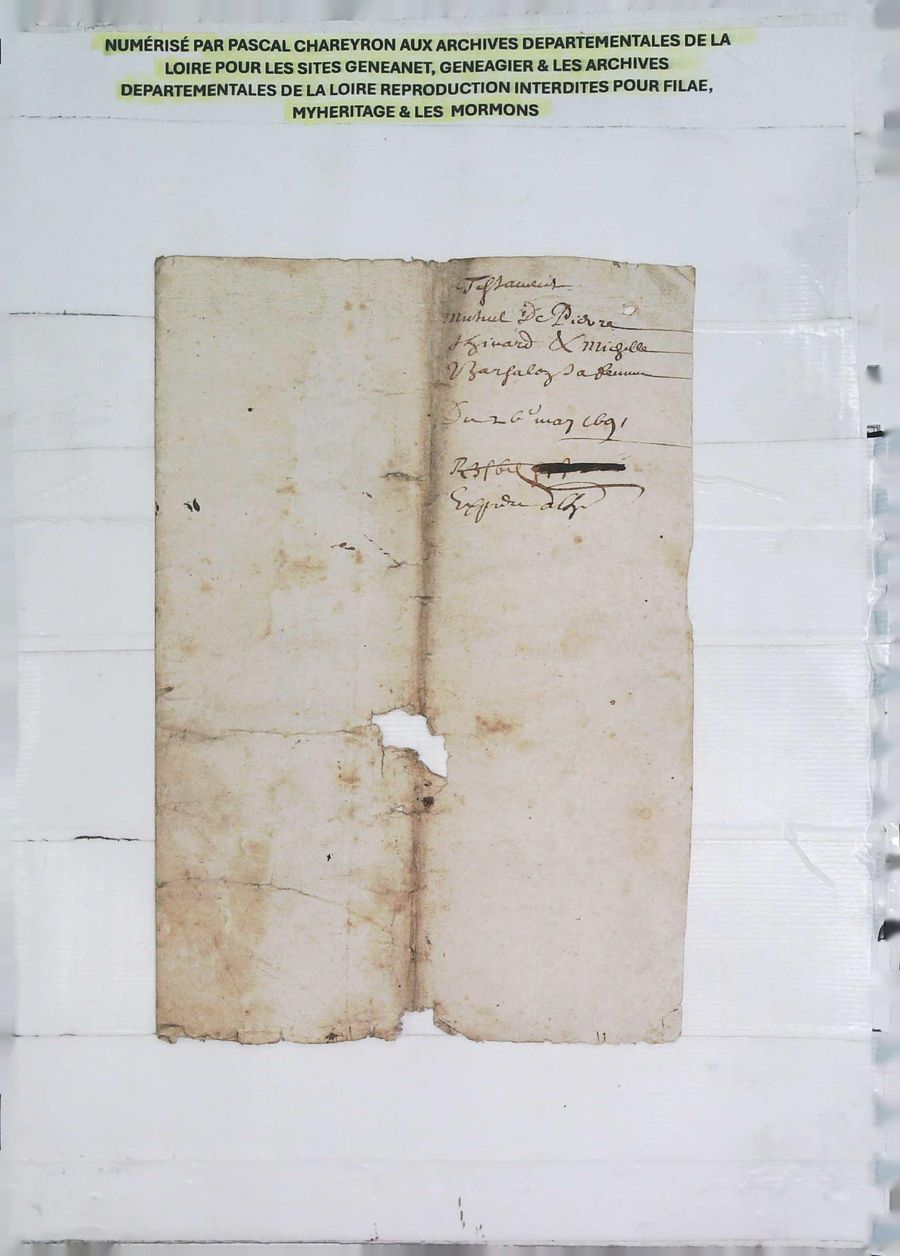 NUMÉRISÉ PAR PASCAL CHAREYRON AUX ARCHIVES DEPARTEMENTALES DE LA
LOIRE POUR LES SITES GENEANET, GENEAGIER & LES ARCHIVES
DEPARTEMENTALES DE LA LOIRE REPRODUCTION INTERDITES POUR FILAE,
MYHERITAGE & LES MORMONS
Testament
mutuel De Pierre
& Michelle
sa femme
Du 26e may 1691
Expedie